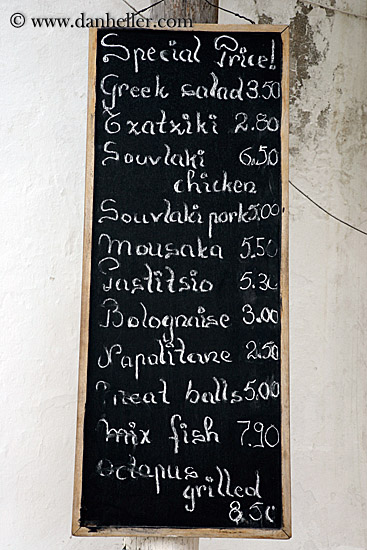 © www.danheller.com
Special Price!
Greek salad 3.50
Txatxiki 2.80
Souvlaki 6.50
chicken
Souvlaki pork 5,00
Mousaka 5,50
Pastitsio 5.30
Bolognaise 3.00
Napolitane 2.50
meat balls 5.00
mix fish 7.90
octapus
grilled
8,50